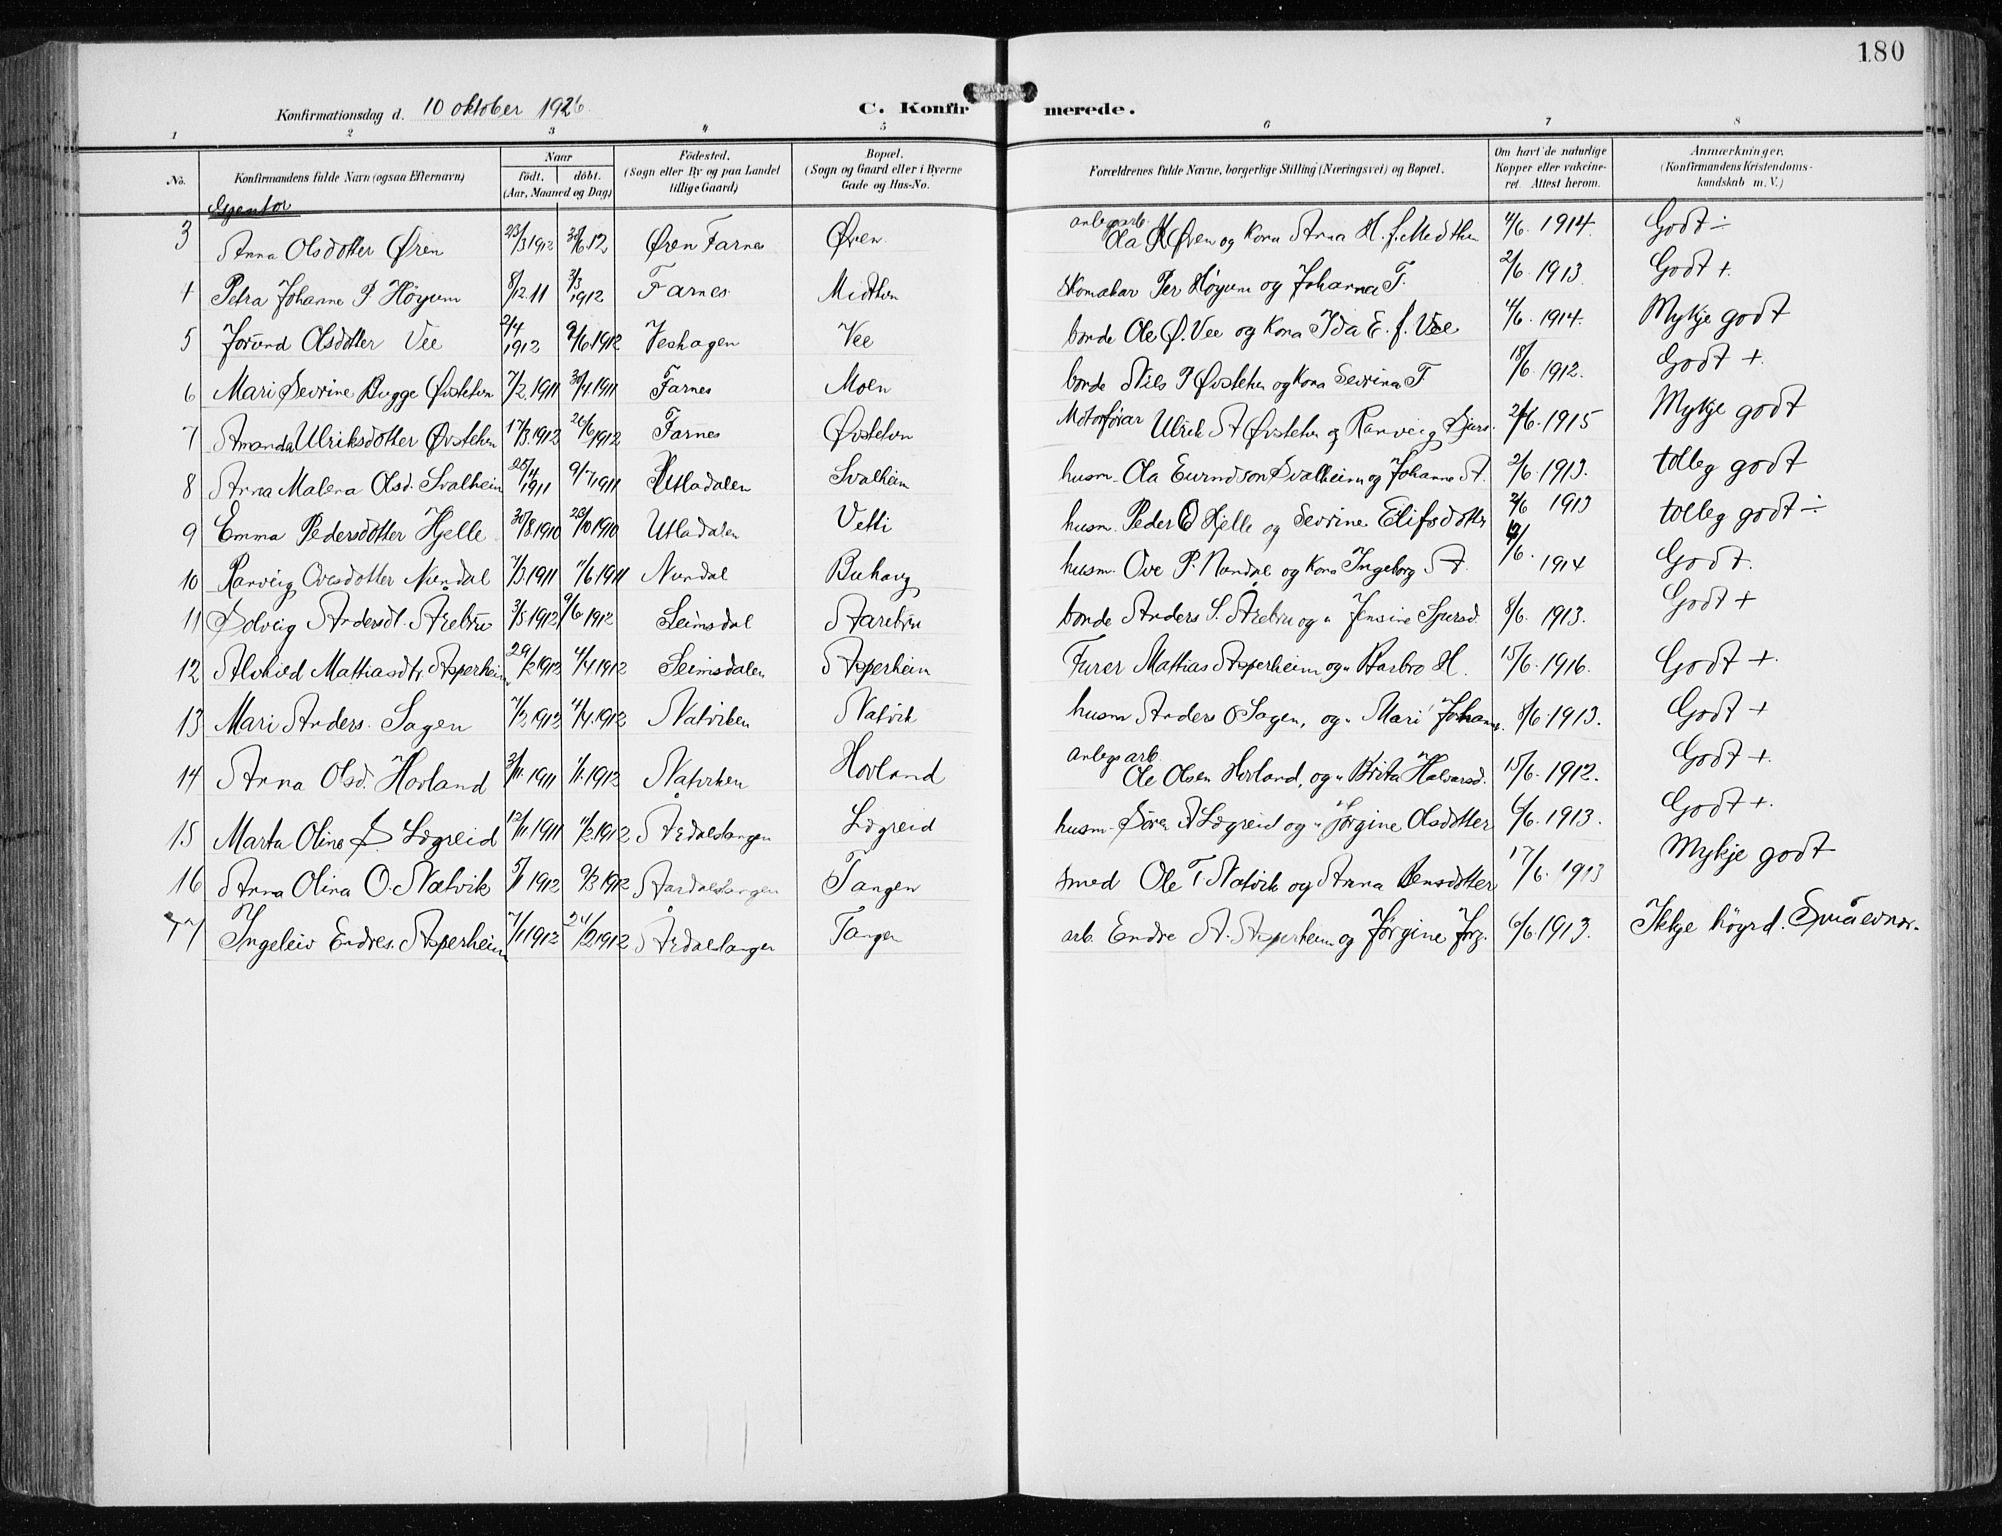 180
Konfirmationsdag d. 10 oktober 1926
C. Konfirmerede.
1 2 3 4 5 6 7 8
No. Konfirmandens fulde Navn (ogsaa Efternavn) Naar födt. döbt. (Aar, Maaned og Dag) Födested. (Sogn eller By og paa Landet tillige Gaard) Bopæl. (Sogn og Gaard eller i Byerne Gade og Hus-No. Forældrenes fulde Navne, borgerlige Stilling (Næringsvei) og Bopæl. Om havt de naturlige Kopper eller vakcineret. Attest herom. Anmærkninger. (Konfirmandens Kristendomskundskab m. V.)
Gjentor
3 Anna Olsdotter Øren 23/3 1912 30/6 12 Øren Farnes Øren anlegsarb. Ola H Øren og Kona Anna H. f. Midthun 4/6. 1914. Godt ÷
4 Petra Johanne P Høyum 8/12 11 3/3 1912 Farnes Midthun Skomakar Per Høyum og Johanna T. 2/6. 1913. Godt +.
5 Jorund Olsdotter Vee 2/4 1912 9/6 1912 Veshagen Vee bonde Ole Ø. Vee og Kona Ida E. f. Vee 4/6. 1914. Mykje godt
6 Mari Sevrine Bugge Øvstetun 7/2 1911 30/4 1911 Farnes Moen bonde Nils P Øvstetun og Kona Sevrina T 18/6. 1912. Godt +.
7 Amanda Ulriksdotter Øvstetun 17/3 1912 26/6 1912 Farnes Øvstetun Motorførar Ulrik A Øvstetun og Ranveig Sjurs. 2/6. 1915 Mykje godt
8 Anna Malena Olsd. Svalheim 25/4 1911 9/7 1911 Utladalen Svalheim husm. Ola Eivindson Svalheim og Johanne A. 2/6. 1913. tolleg godt
9 Emma Pedersdotter Hjelle 30/8 1910 23/10 1910 Utladalen Vetti husm. Peder O Hjelle og Sevrine Elifsdotter 2/6 1913 tolleg godt ÷
10 Ranveig Ovesdotter Nundal 7/3 1911 11/6 1911 Nundal Buhaug husm. Ove P. Nundal og Kona Ingeborg A. /6. 1914 Godt.
11 Solveig Andersdt. Årebru 3/5 1912 9/6 1912 Seimsdal Aarebru bonde Anders S. Årebru og " Jensine Sjursd. 8/6. 1913. Godt +
12 Alvhild Mathiasdt. Asperheim 29/2 1912 4/4 1912 Seimsdalen Asperheim Furer Mathias Asperheim og " Barbro H. 15/6. 1916. Godt +.
13 Mari Anders. Sagen 7/3 1912 4/4 1912 Natviken Natvik husm Anders O Sagen, og " Mari Johanns. 8/6. 1913. Godt +
14 Anna Olsd. Hovland 3/11 1911 1/1 1912 Natviken Hovland anlegsarb. Ole Olsen Hovland, og " Brita Halvarsd. 15/6. 1912. Godt +.
15 Marta Oline S. Lægreid 12/11 1911 11/2 1912 Årdalstangen Lægreid husm. Søren A Lægreid og " Jørgine Olsdotter 6/6. 1913. Godt +.
16 Anna Olina O. Natvik 5/1 1912 9/3 1912 Aardalstangen Tangen Smed Ole T. Natvik og Anna Jensdotter 17/6. 1913 Mykje godt
17 Ingeleiv Endres. Asperheim 7/1 1912 24/2 1912 Årdalstangen Tangen arb. Endre A. Asperheim og Jørgine Jørg. 6/6. 1913. Ikkje høyrd. Småevnor.